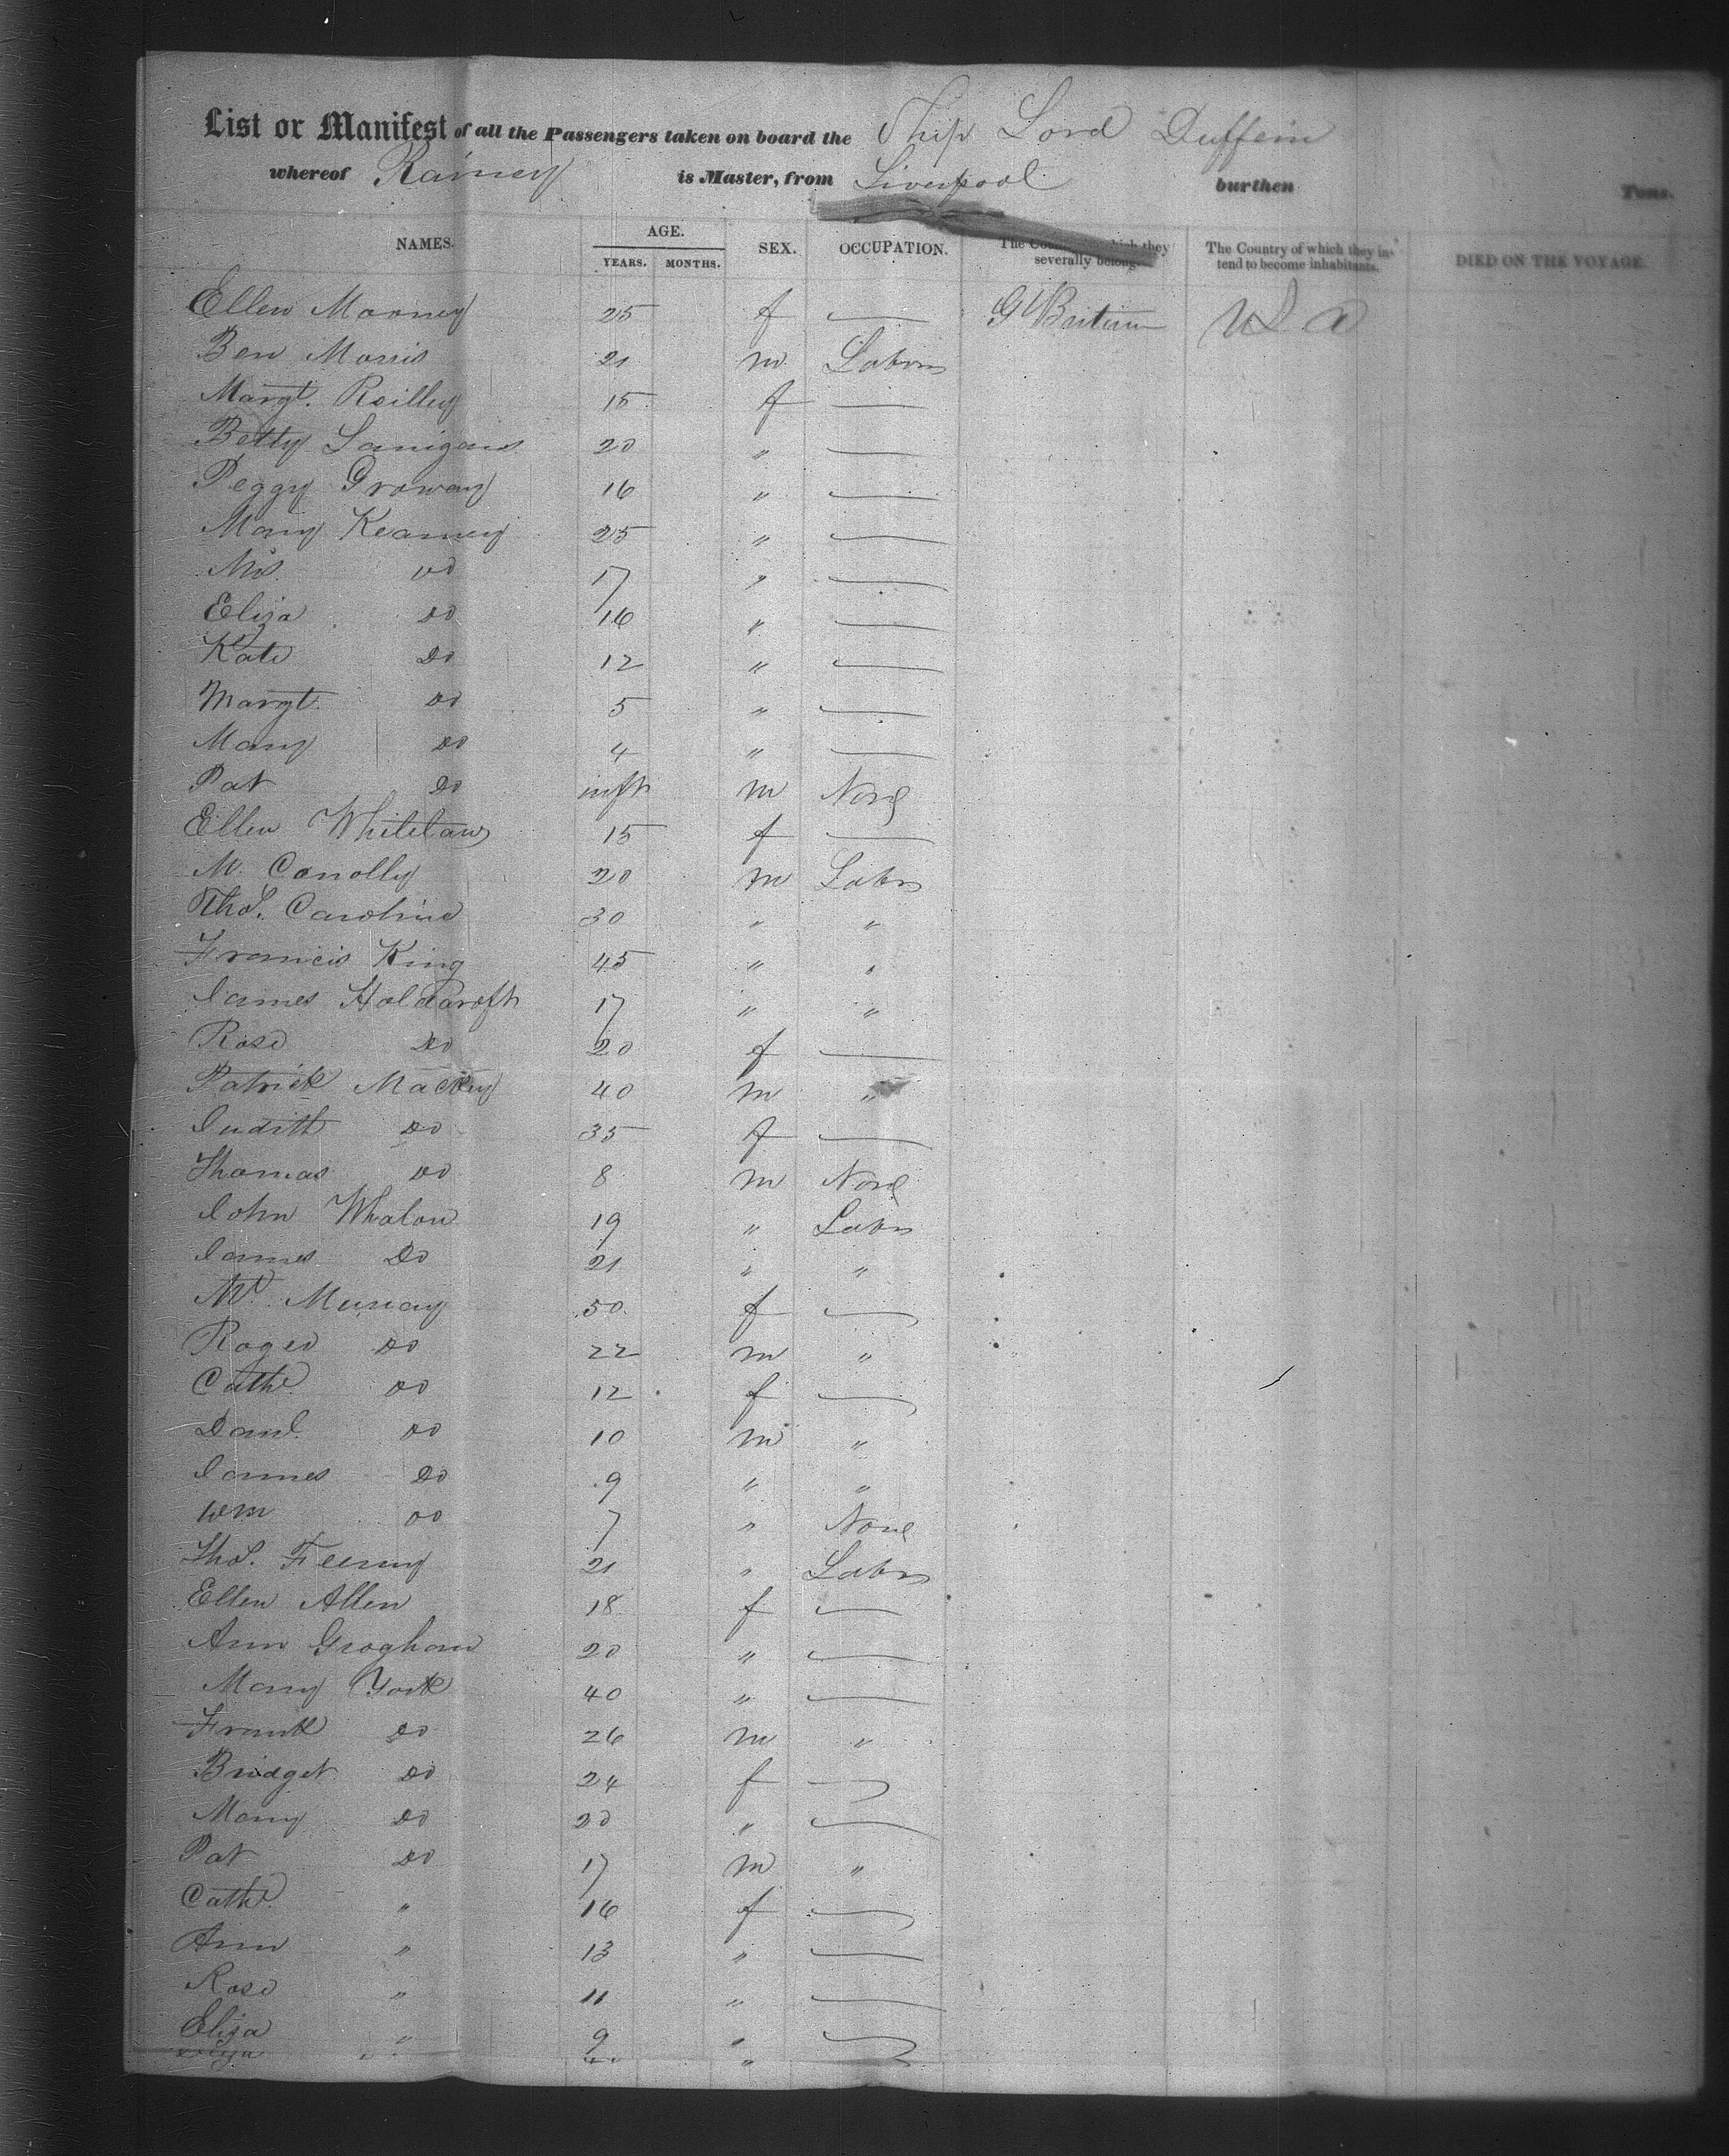 List or Manifest of all the Passengers taken on board the Ship Lord Dufferin
whereof Rainey is Master, from Liverpool burthen Tons.
NAMES. AGE. YEARS. MONTHS. SEX. OCCUPATION. The Country which they severally belong The Country of which they intend to become inhabitants. DIED ON THE VOYAGE.
Ellen Mooney 25 f — Gt Britain USA
Ben Morris 21 m Labour
Margt. Reilley 15 f —
Betty Lanigans 20 " —
Peggy Growney 16 " —
Mary Kearney 25 " —
Mrs. Do 17 " —
Eliza Do 16 " —
Kate Do 12 " —
Margt. Do 5 " —
Mary Do 4 " —
Pat Do inft m None
Ellen Whitelaw 15 f —
M. Conolly 20 m Labr
Thos. Caroline 30 " "
Francis King 45 " "
James Holdcroft 17 " "
Rose Do 20 f —
Patrick Mackey 40 m "
Judith Do 35 f —
Thomas Do 8 m None
John Whalon 19 " Labr
James Do 21 " "
Murray 50 f —
Roger Do 22 m "
Cathe Do 12 f —
Danl. Do 10 m "
James Do 9 " "
Wm Do 7 " None
Thos. Feeny 21 " Labr
Ellen Allen 18 f —
Ann Groghan 20 " —
Mary York 40 " —
Frank Do 26 m "
Bridget Do 24 f —
Mary Do 20 " —
Pat Do 17 m "
Cathe " 16 f —
Ann " 13 " —
Rose " 11 " —
Eliza " 9 " —